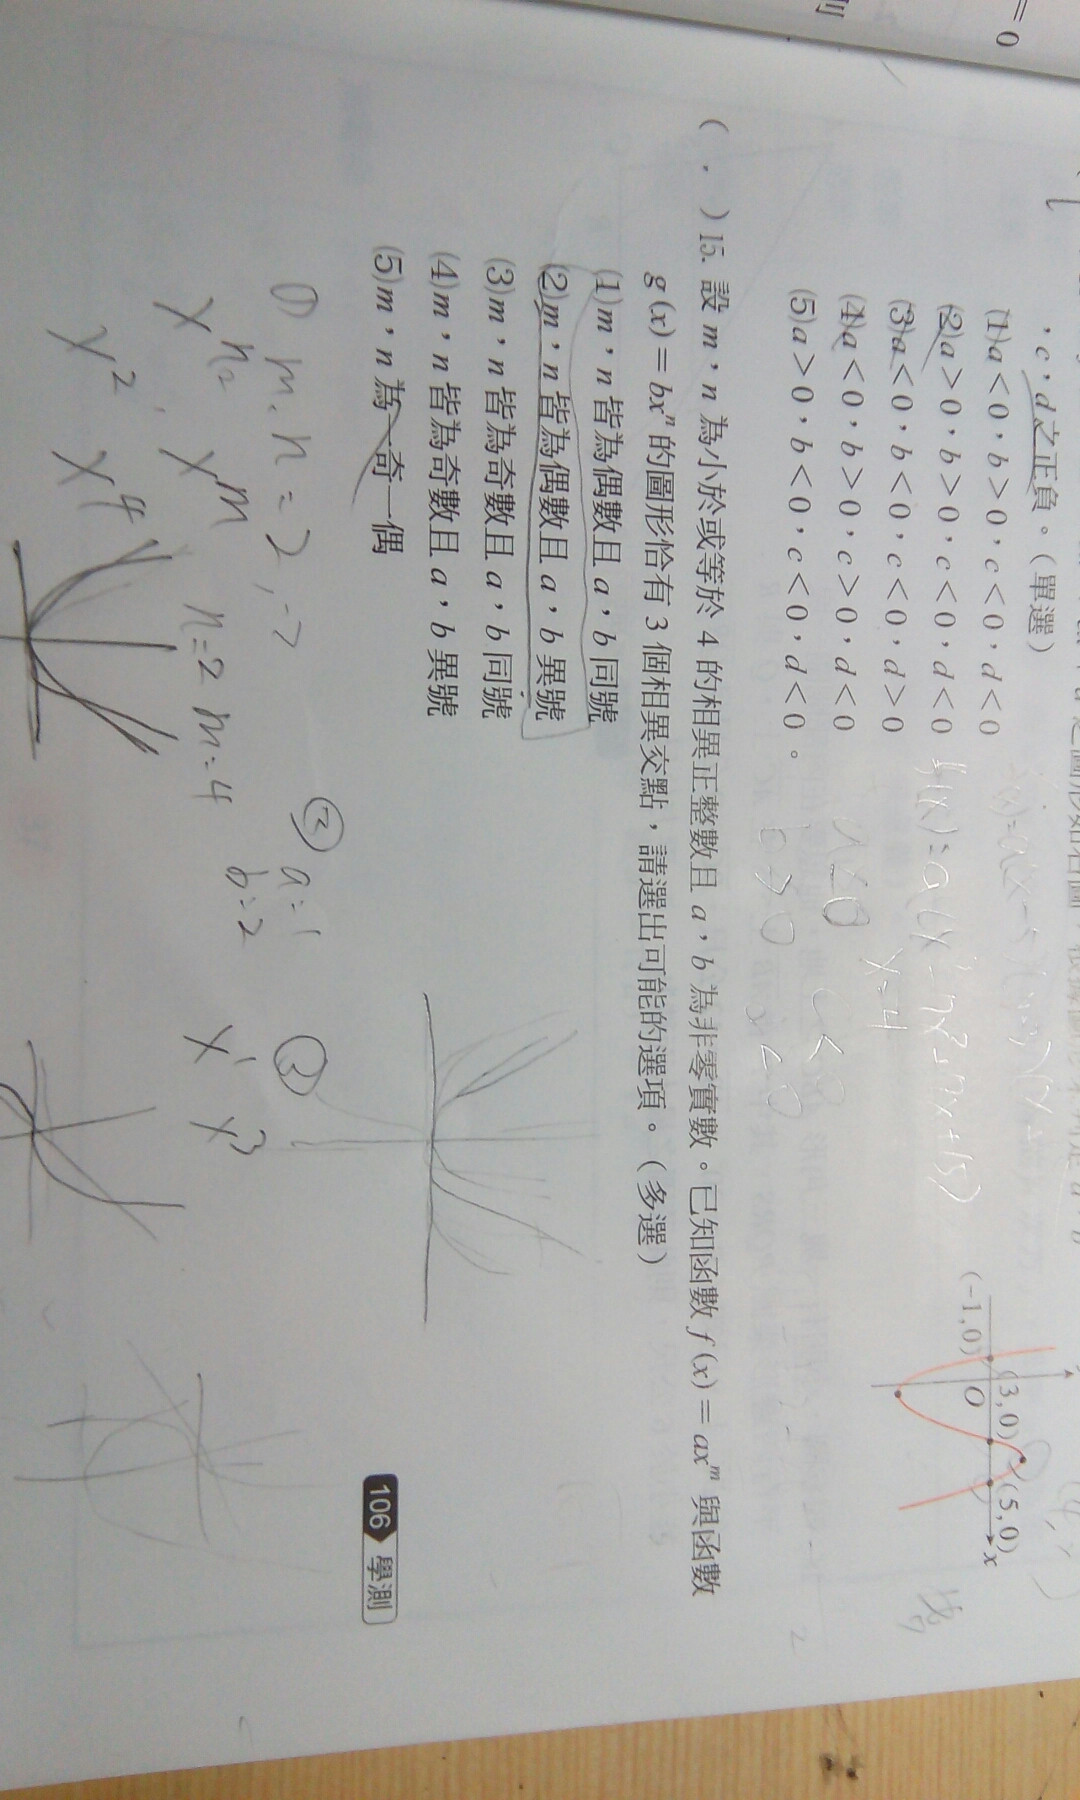 = 0
，c，d之正負。（單選）
(1)a＜0，b＞0，c＜0，d＜0
(2)a＞0，b＞0，c＜0，d＜0
(3)a＜0，b＜0，c＜0，d＞0
(4)a＜0，b＞0，c＞0，d＜0
(5)a＞0，b＜0，c＜0，d＜0。
(−1,0)
O
(3,0)
(5,0)
x
x=4
a<0
（ ）15. 設 m，n 為小於或等於 4 的相異正整數且 a，b 為非零實數。已知函數 f(x)＝axᵐ 與函數
g(x)＝bxⁿ 的圖形恰有 3 個相異交點，請選出可能的選項。（多選）
(1)m，n 皆為偶數且 a，b 同號
(2)m，n 皆為偶數且 a，b 異號
(3)m，n 皆為奇數且 a，b 同號
(4)m，n 皆為奇數且 a，b 異號
(5)m，n 為一奇一偶
106 學測
m.n=2
n=2 m=4
x² x⁴
a=1
b=2
x¹ x³